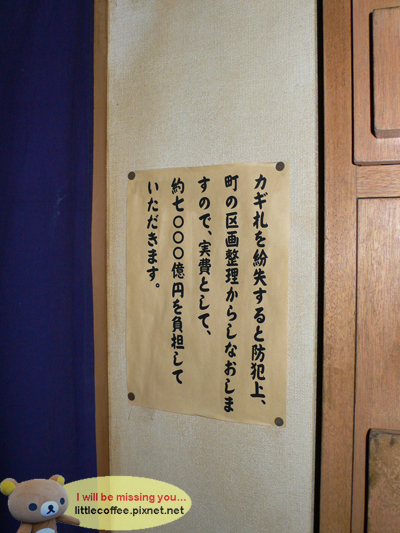 カギ札を紛失すると防犯上、
町の区画整理からしなおしま
すので、実費として、
約七〇〇〇億円を負担して
いただきます。
I will be missing you...
littlecoffee.pixnet.net